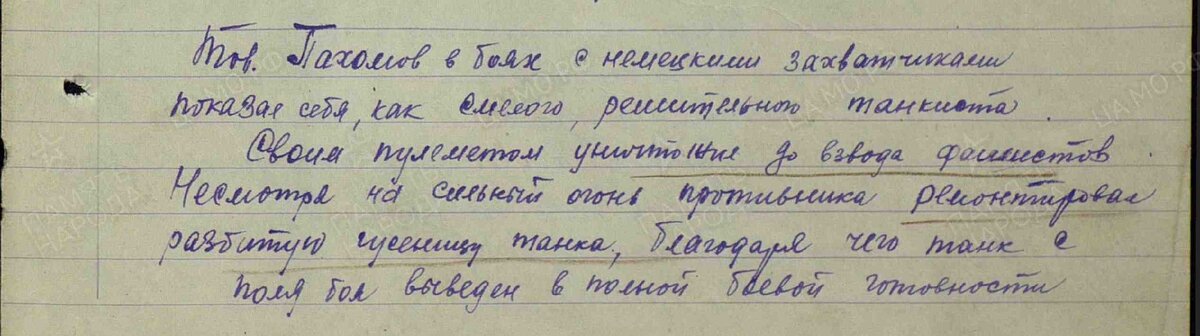 Тов. Пахомов в боях с немецкими захватчиками
показал себя, как смелого, решительного танкиста.
Своим пулеметом уничтожил до взвода фашистов.
Несмотря на сильный огонь противника ремонтировал
разбитую гусеницу танка, благодаря чего танк с
поля боя выведен в полной боевой готовности